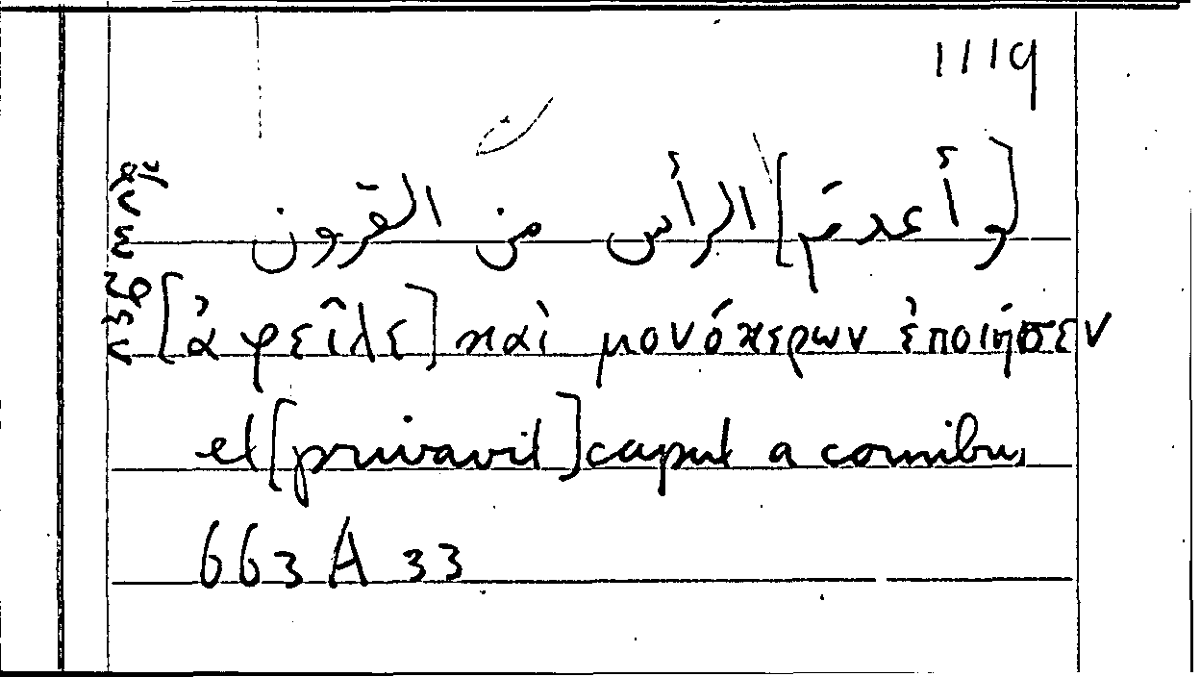 1119
[وأعدم] الرأس من القرون
[ἀφεῖλε] καὶ μονόκερων ἐποίησεν
et [privavit] caput a cornibus
663 A 33